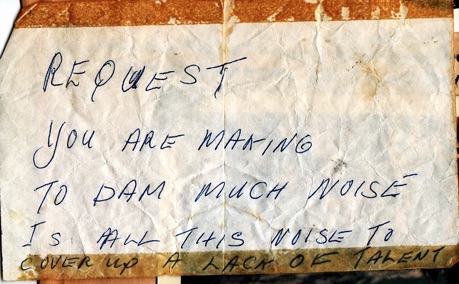 REQUEST
YOU ARE MAKING
TO DAM MUCH NOISE
IS ALL THIS NOISE TO
COVER UP A LACK OF TALENT